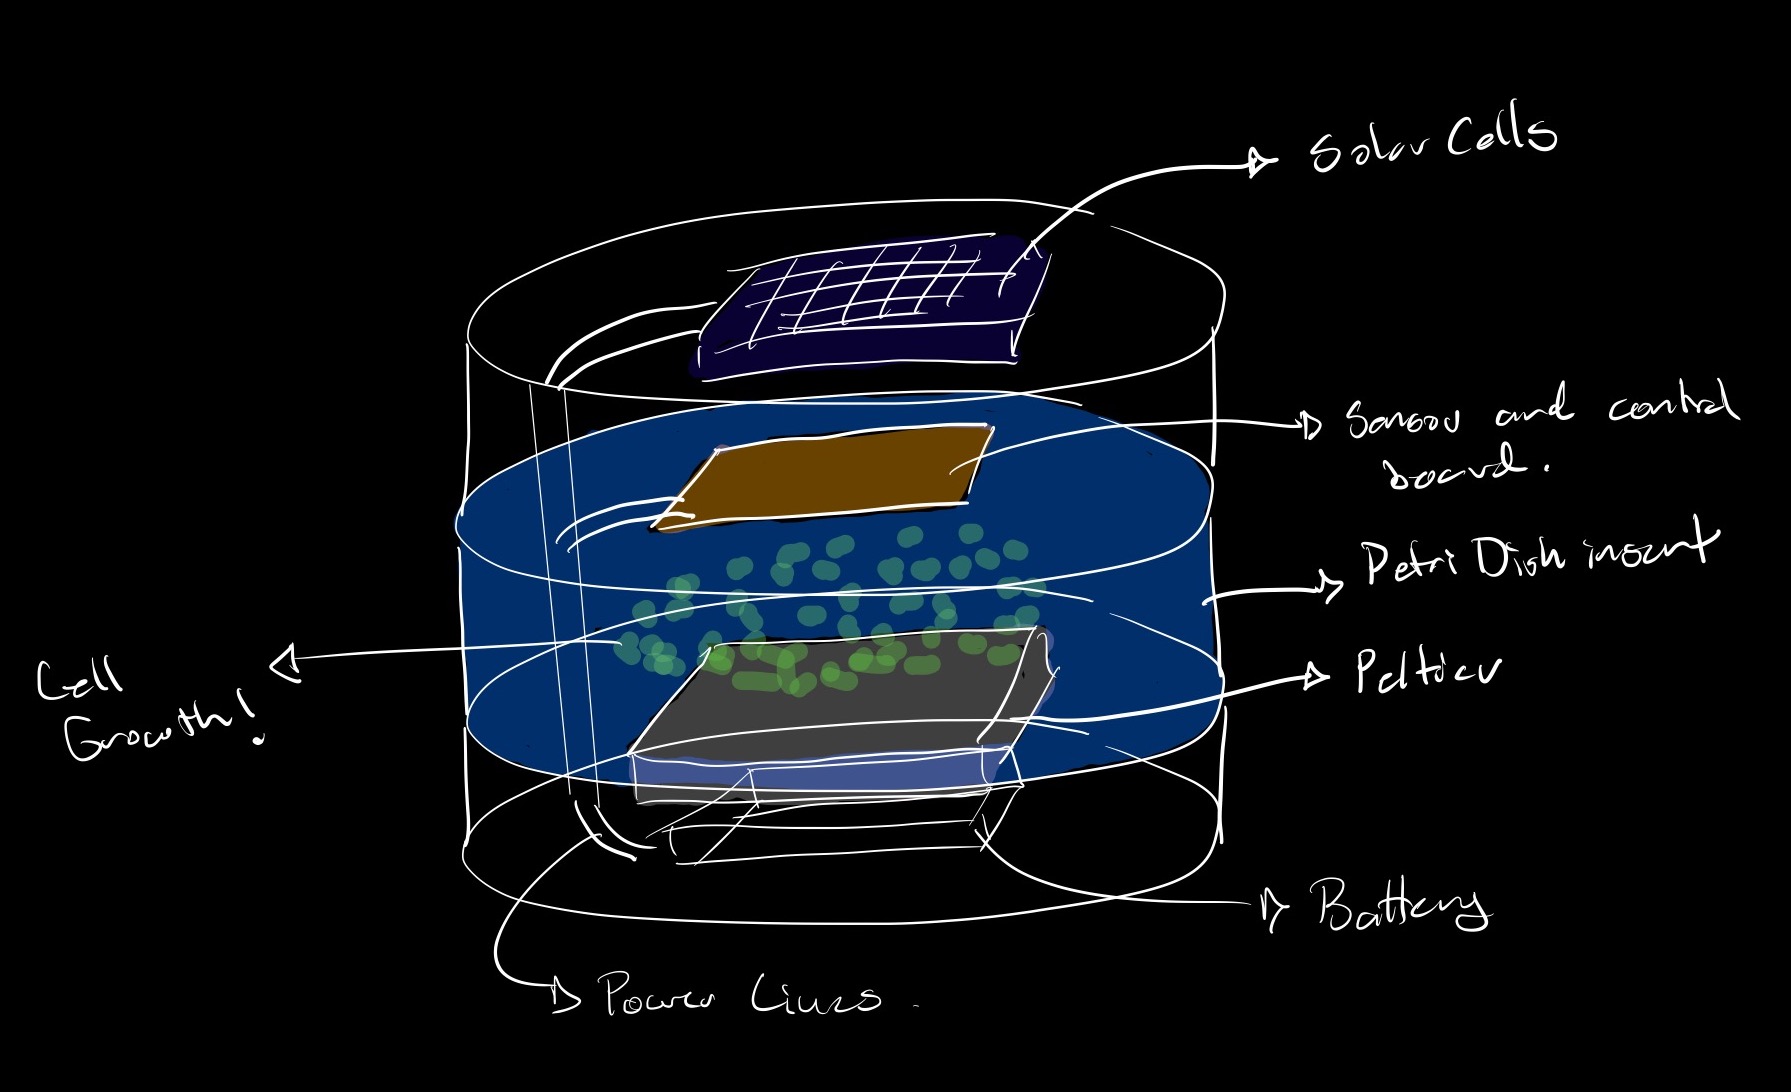 Solar Cells
Sensor and control
board.
Petri Dish insert
Peltier
Cell
Growth!
Battery
Power Lines.